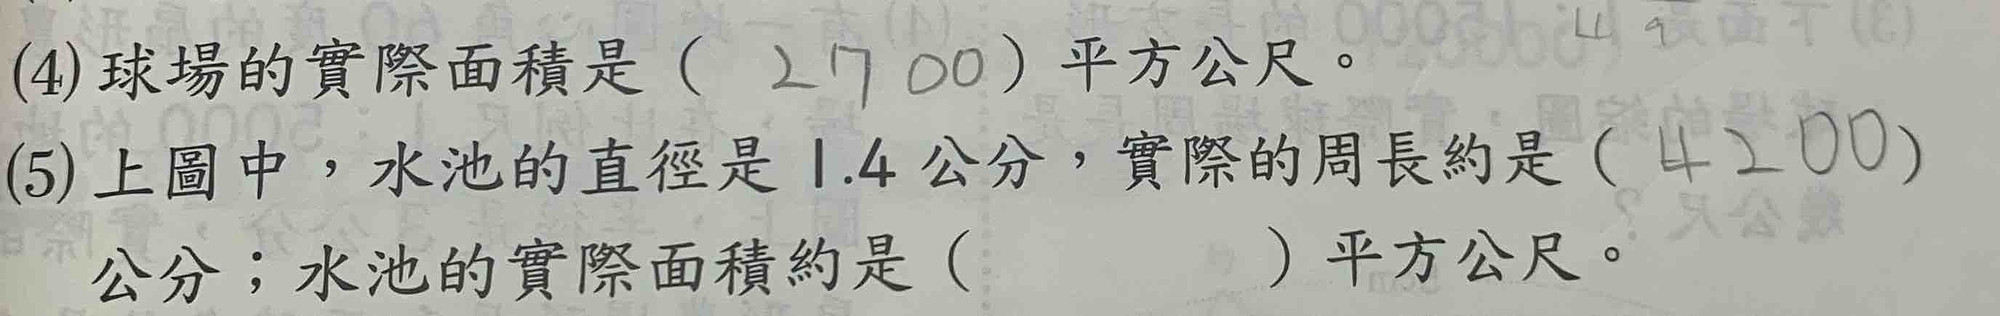 (4)球場的實際面積是( 2700)平方公尺。
(5)上圖中，水池的直徑是1.4公分，實際的周長約是(4200)
公分；水池的實際面積約是( )平方公尺。